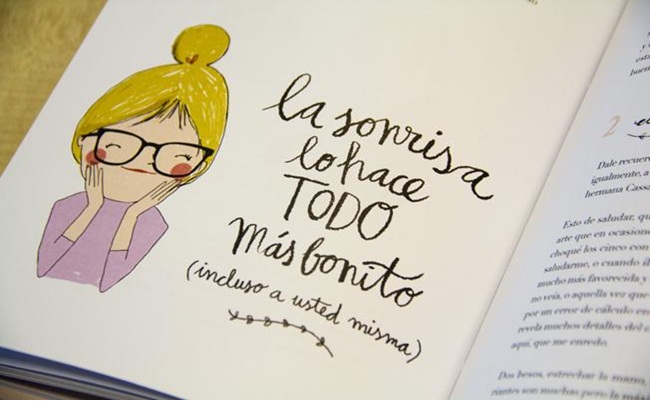 la sonrisa
lo hace
TODO
más bonito
(incluso a usted misma)
2
Dale recuer
igualmente, a
hermana Cass
Esto de saludar, qu
arte que en ocasion
choqué los cinco con
saludarme, o cuando
mucho más favorecida y
no veía, o aquella vez que
por un error de cálculo en
revela muchos detalles del
aquí, que me enredo.
Dos besos, estrechar la mano,
riantes son muchas pero la